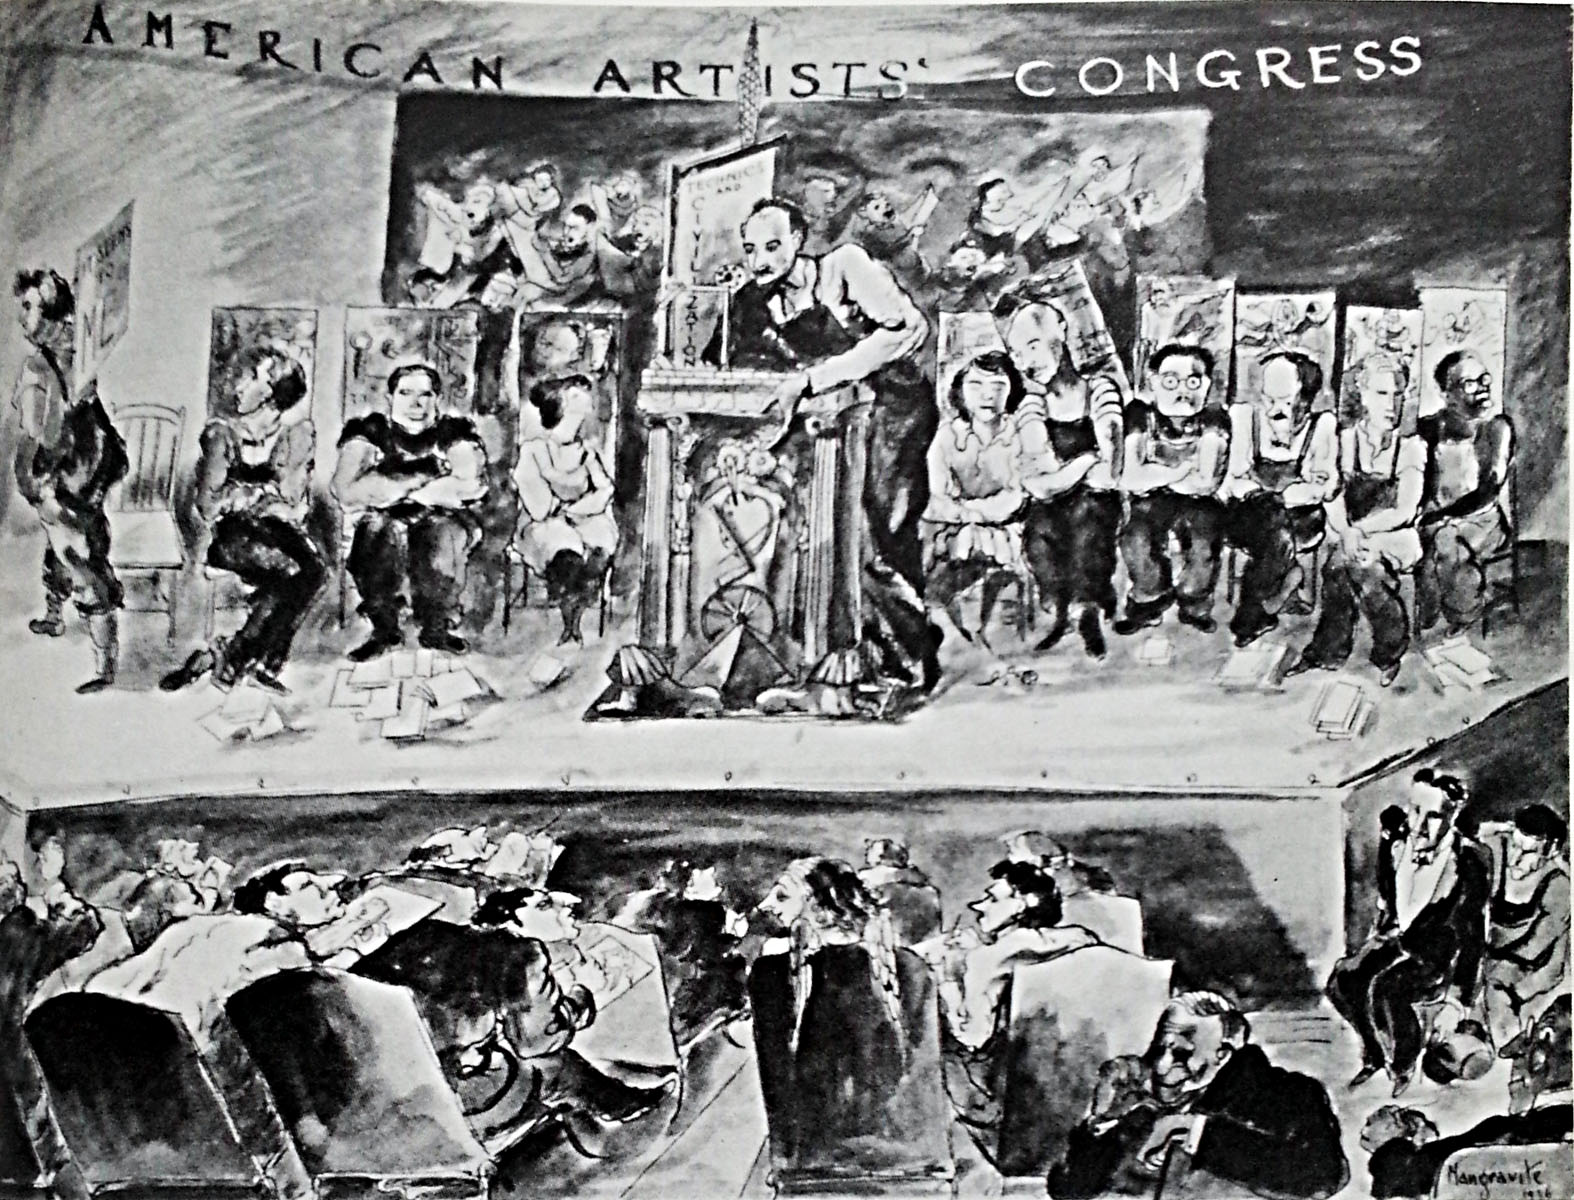 AMERICAN ARTISTS' CONGRESS
TECHNICS
AND
CIVILIZATION
Mangravite